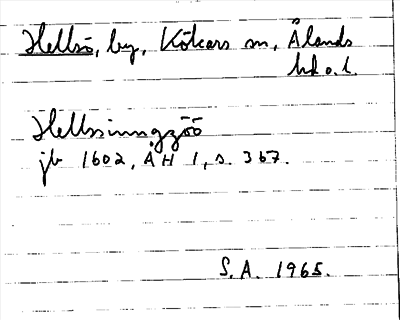 Hellsö, by, Kökars sn, Ålands
hd o. l.
Hellssinngzöö
jb 1602, ÅH 1, s. 367.
S.A. 1965.